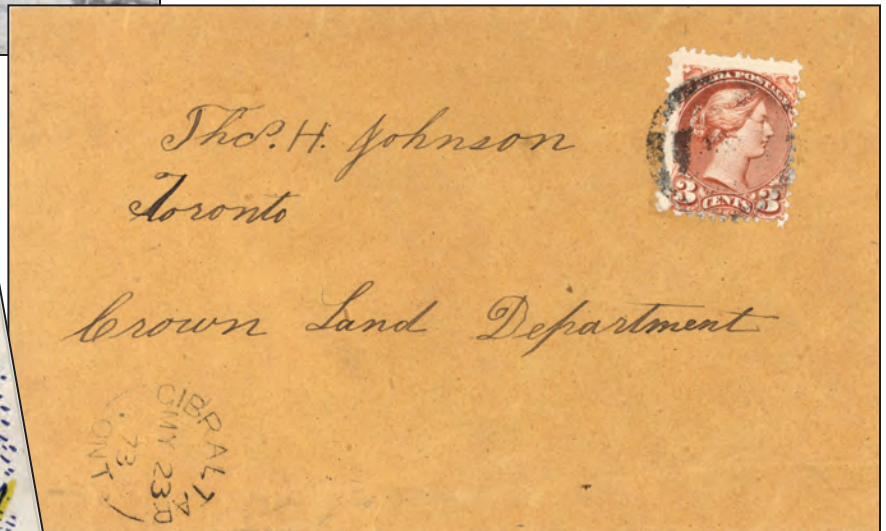 DA POSTAGE
3 CENTS 3
Thos. H. Johnson
Toronto
Crown Land Department
GIBRALTAR
MY 23
73
ONT